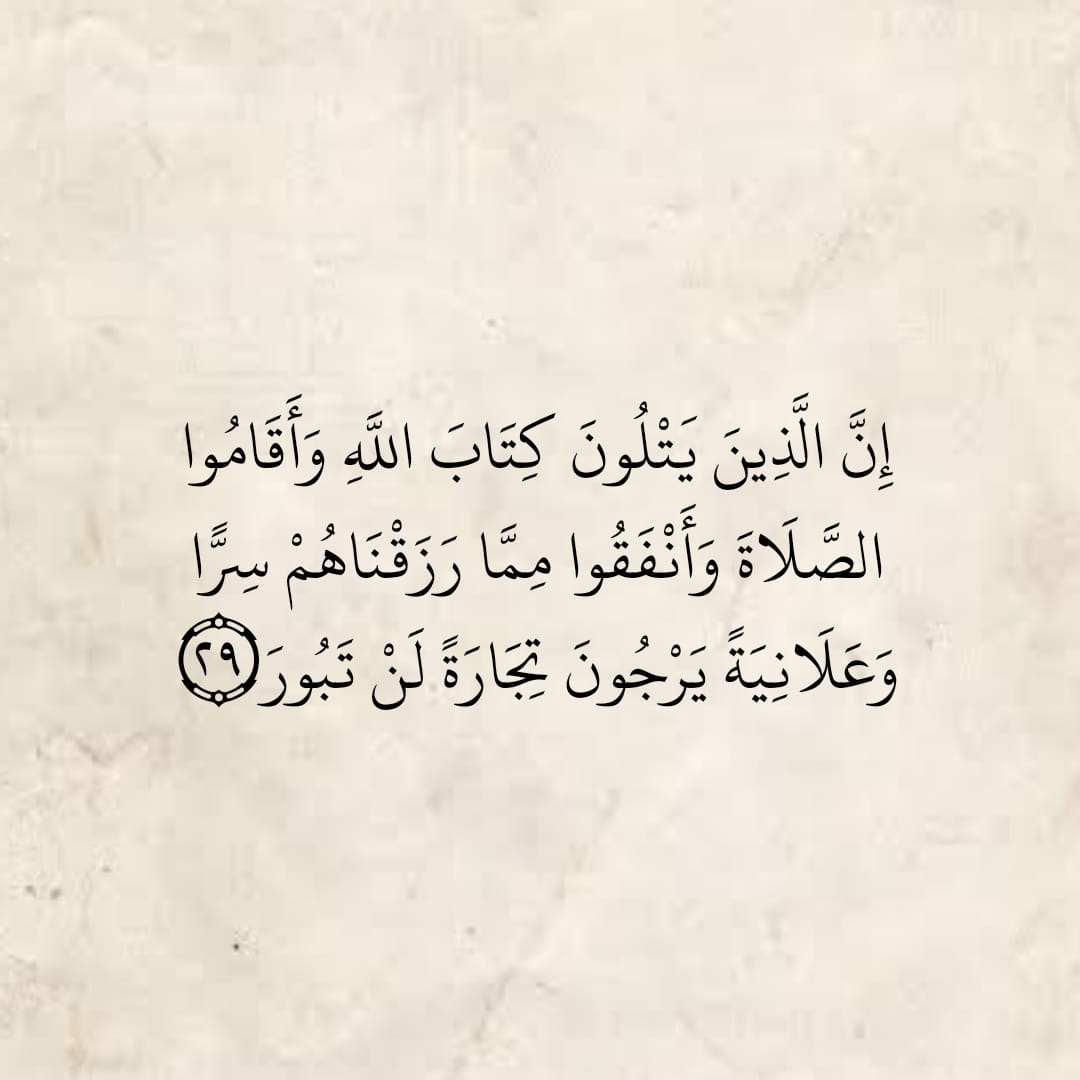 إِنَّ الَّذِينَ يَتْلُونَ كِتَابَ اللَّهِ وَأَقَامُوا
الصَّلَاةَ وَأَنْفَقُوا مِمَّا رَزَقْنَاهُمْ سِرًّا
وَعَلَانِيَةً يَرْجُونَ تِجَارَةً لَنْ تَبُورَ ٢٩